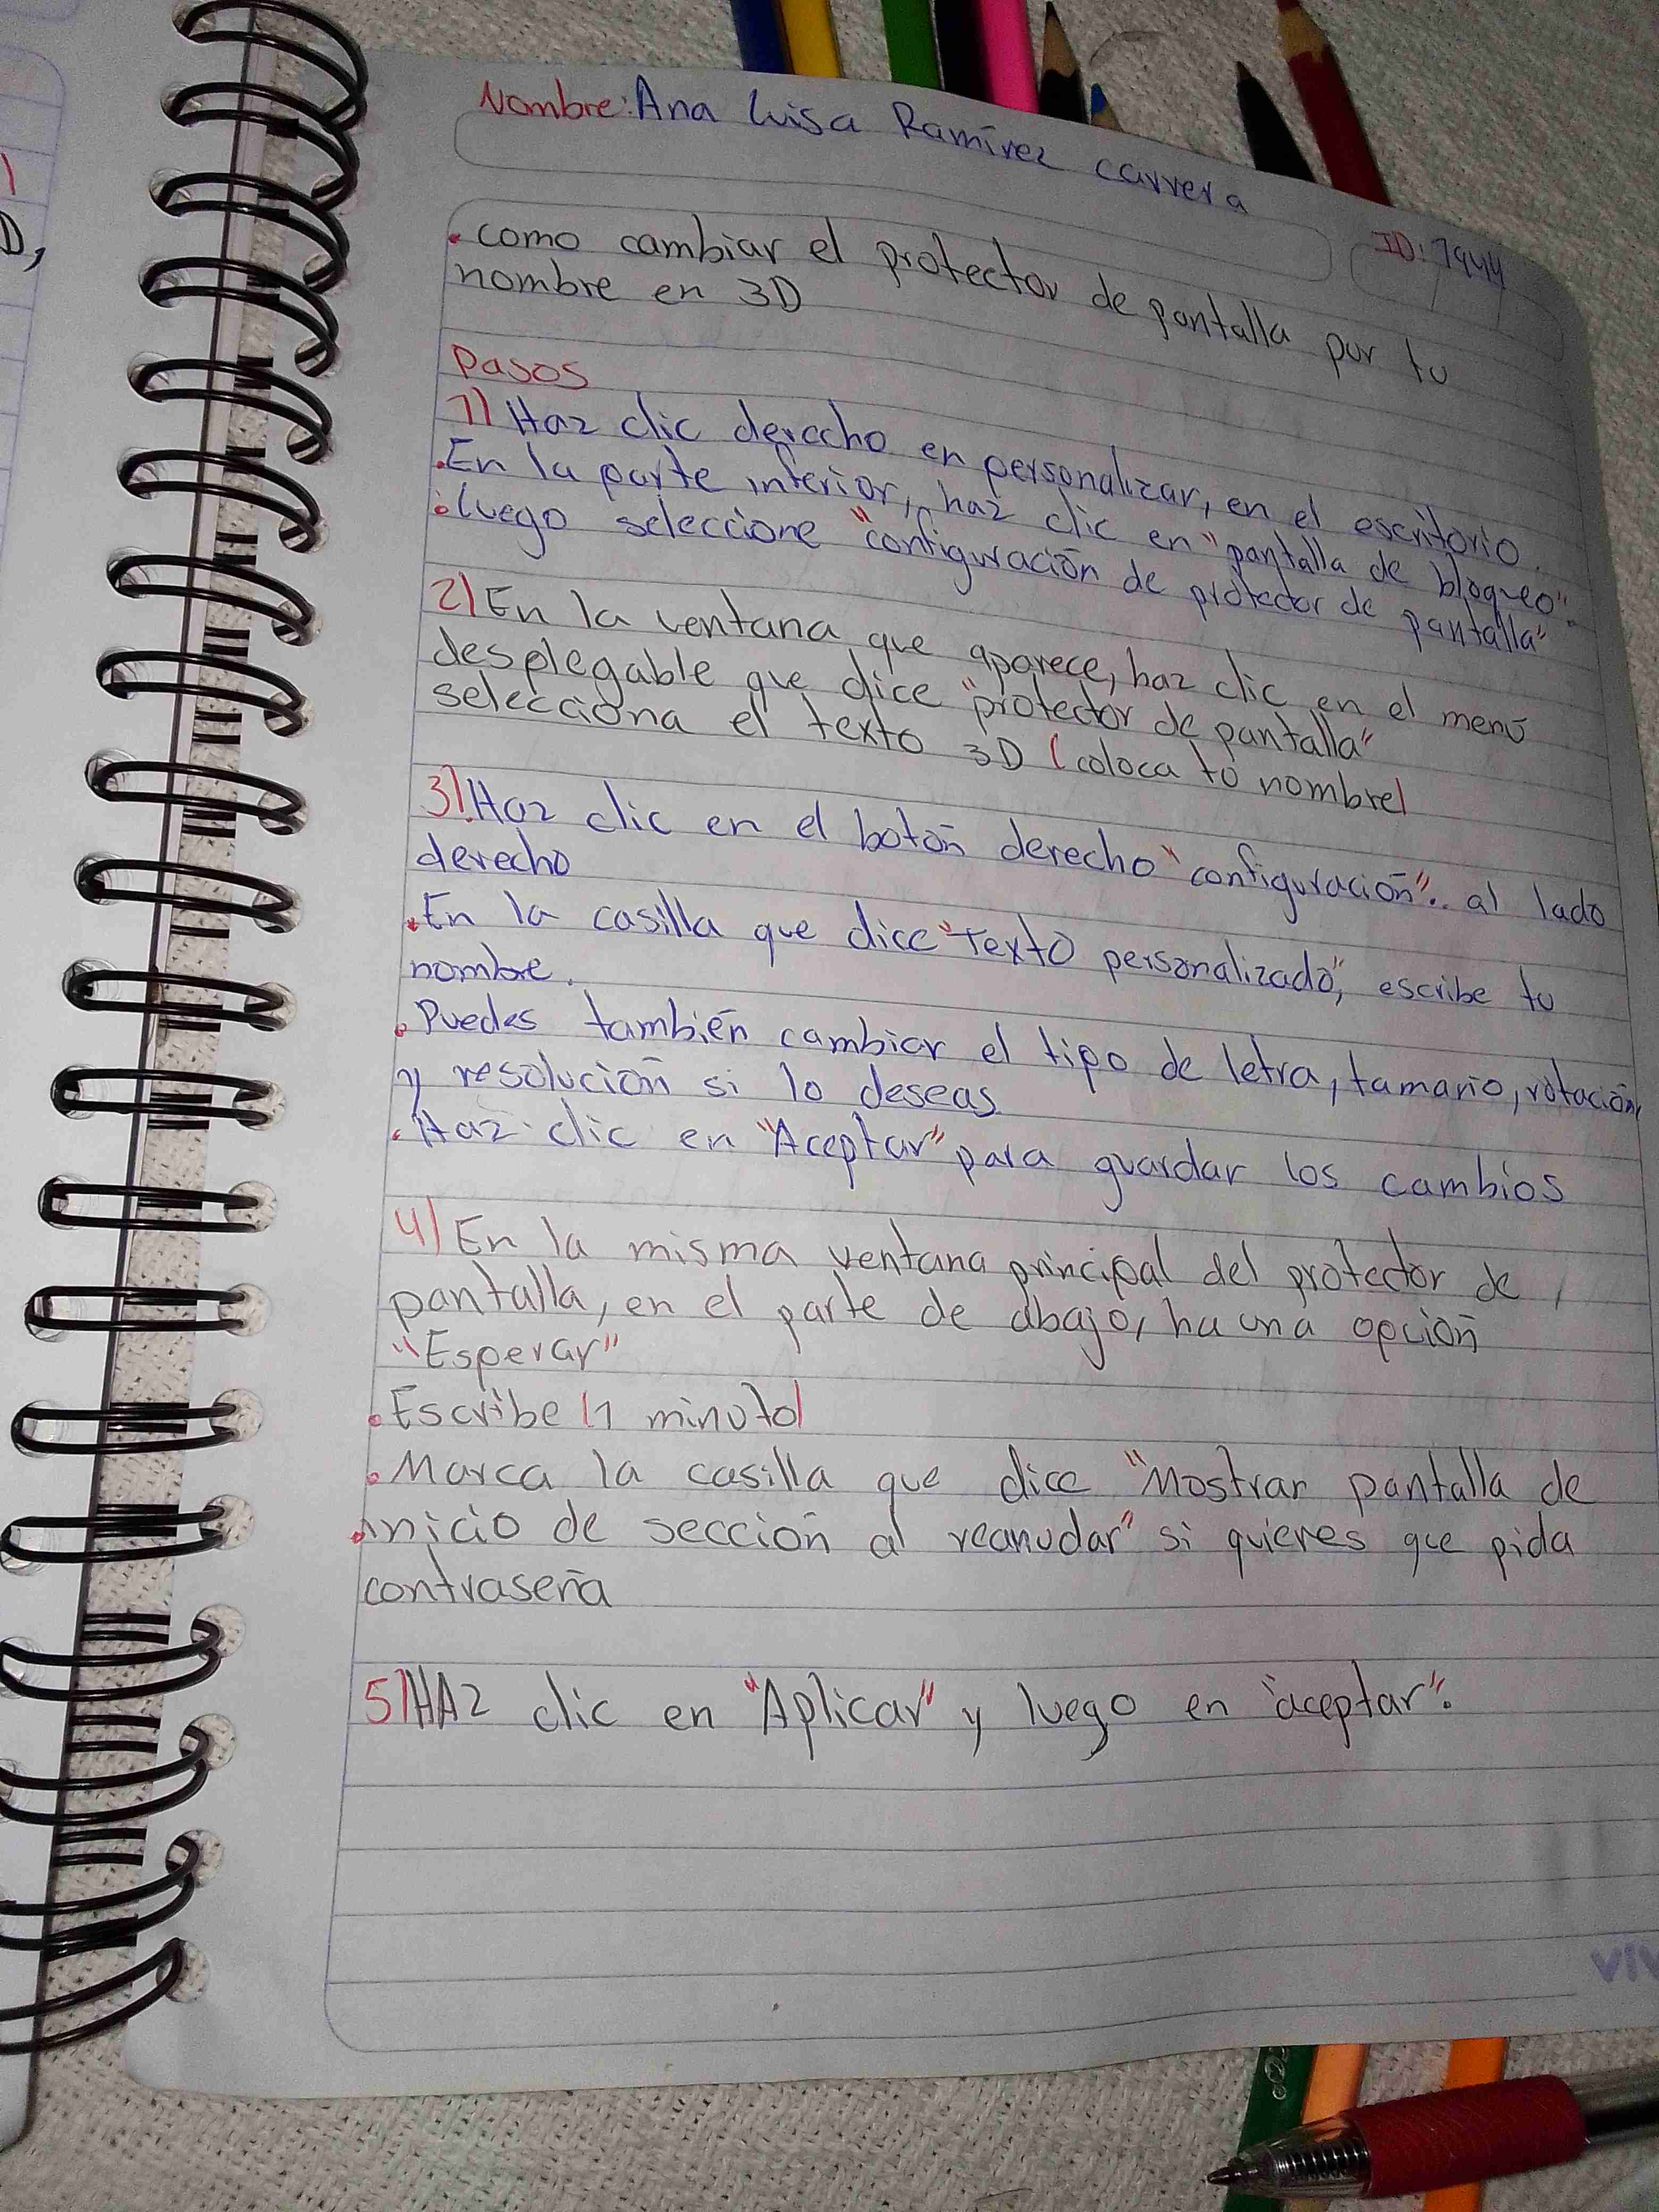 Nombre: Ana Luisa Ramírez Carrera
ID: 7944
. como cambiar el protector de pantalla por tu
nombre en 3D
Pasos
1) Haz clic derecho en personalizar, en el escritorio.
.En la parte inferior, haz clic en "pantalla de bloqueo".
. luego seleccione "configuración de protector de pantalla"
2) En la ventana que aparece, haz clic en el menú
desplegable que dice "protector de pantalla"
selecciona el texto 3D (coloca tu nombre)
3) Haz clic en el botón derecho "configuración".. al lado
derecho
.En la casilla que dice "Texto personalizado", escribe tu
nombre.
. Puedes también cambiar el tipo de letra, tamaño, rotación,
y resolución si lo deseas
. Haz clic en "Aceptar" para guardar los cambios
4) En la misma ventana principal del protector de
pantalla, en el parte de abajo, ha una opción
"Esperar"
. Escribe (1 minuto)
. Marca la casilla que dice "Mostrar pantalla de
.inicio de sección al reanudar" si quieres que pida
contraseña
5) HAz clic en "Aplicar" y luego en "aceptar".
D,